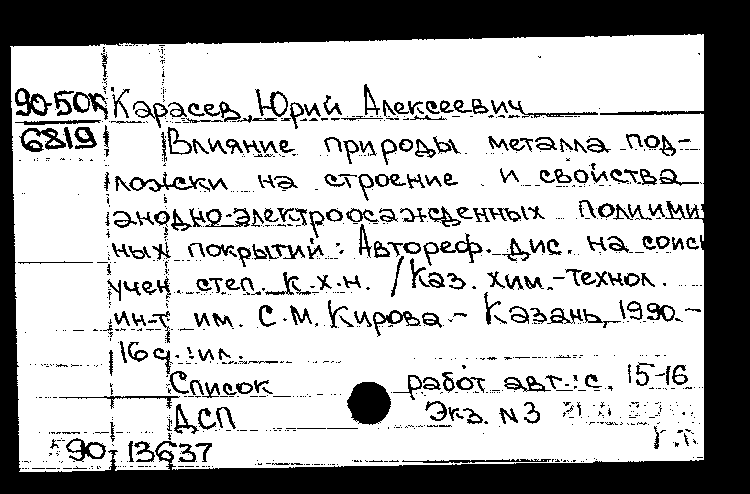 90-50К Карасев, Юрий Алексеевич
6819
Влияние природы металла под-
ложки на строение и свойства
анодно-электроосажденных полиими
ных покрытий: Автореф. дис. на соиск
учен. степ. к.х.н. /Каз. хим.-технол.
ин-т им. С.М. Кирова.- Казань, 1990.-
16 с.:ил.
Список работ авт.: с. 15-16
ДСП Экз. N3
90-13637